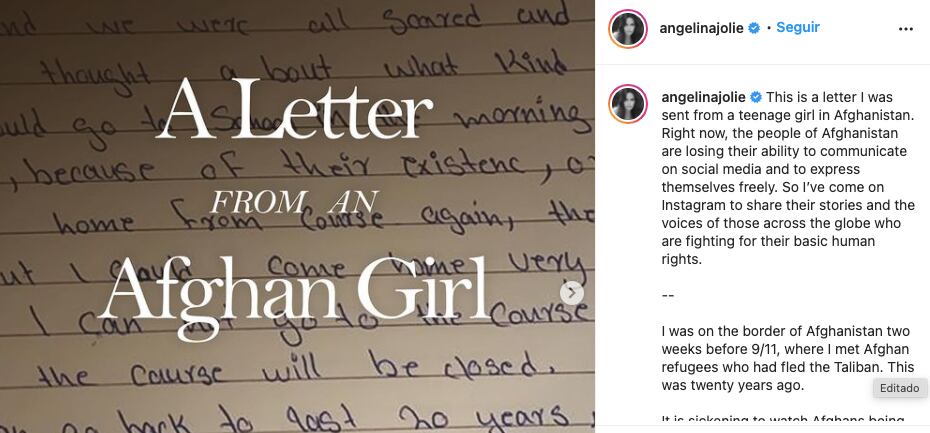 nd we were all scared and
thought a bout what Kind
A Letter
uld go to School morning
, because of their existenc, o
FROM AN
home from Course again, the
ut I could come home very
Afghan Girl
I can not go to the Course
the Course will be closed.
go back to last 20 years
angelinajolie • Seguir
angelinajolie This is a letter I was
sent from a teenage girl in Afghanistan.
Right now, the people of Afghanistan
are losing their ability to communicate
on social media and to express
themselves freely. So I've come on
Instagram to share their stories and the
voices of those across the globe who
are fighting for their basic human
rights.
--
I was on the border of Afghanistan two
weeks before 9/11, where I met Afghan
refugees who had fled the Taliban. This
was twenty years ago.
Editado
It is sickening to watch Afghans being